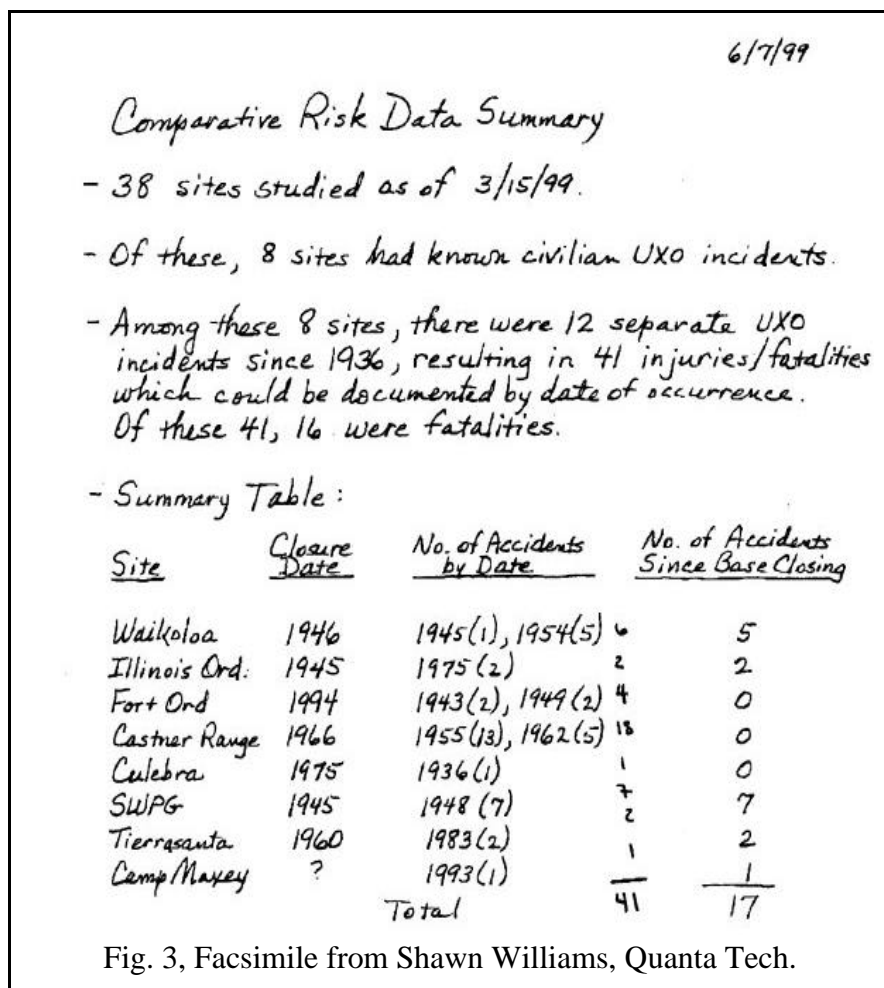 6/7/99
Comparative Risk Data Summary
- 38 sites studied as of 3/15/99.
- Of these, 8 sites had known civilian UXO incidents.
- Among these 8 sites, there were 12 separate UXO
incidents since 1936, resulting in 41 injuries/fatalities
which could be documented by date of occurrence.
Of these 41, 16 were fatalities.
- Summary Table:
Site Closure Date No. of Accidents by Date No. of Accidents Since Base Closing
Waikoloa 1946 1945(1), 1954(5) 6 5
Illinois Ord. 1945 1975(2) 2 2
Fort Ord 1994 1943(2), 1949(2) 4 0
Castner Range 1966 1955(13), 1962(5) 18 0
Culebra 1975 1936(1) 1 0
SWPG 1945 1948(7) 7 7
Tierrasanta 1960 1983(2) 2 2
Camp Maxey ? 1993(1) 1 1
Total 41 17
Fig. 3, Facsimile from Shawn Williams, Quanta Tech.